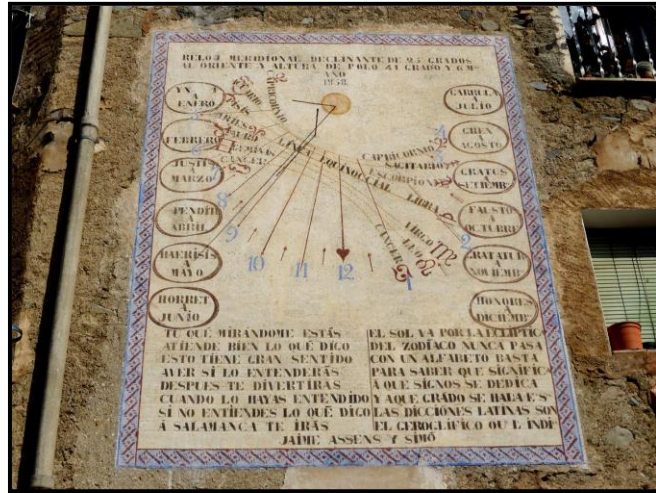 RELOJ MERIDIONAL DECLINANTE DE 25 GRADOS
AL ORIENTE Y ALTURA DE POLO 41 GRADO Y 6 M
AÑO
1958.
A
ENERO
FEBRERO
JUSTIS
A
MARZO
PENDIT
A
ABRIL
BAERISIS
A
MAYO
HORRET
A
JUNIO
GARRULA
A
JULIO
GREX
A
AGOSTO
GRATUS
A
SETIEMB
FAUSTO
A
OCTUBRE
GRATATUR
A
NOVIEMB
HONORES
A
DICIEMB
CAPRICORNIO
PISIS
ARIES
TAURO
GEMINIS
CANCER
LINEA EQUINOCCIAL
CAPRICORNIO
SAGITARIO
ESCORPION
LIBRA
VIRGO
LEO
CANCER
8
9
10
11
12
1
2
TU QUÉ MIRÁNDOME ESTÁS
ATIENDE BIEN LO QUÉ DIGO
ESTO TIENE GRAN SENTIDO
AVER SÍ LO ENTENDERÁS
DESPUES TE DIVERTIRÁS
CUANDO LO HAYAS ENTENDIDO
SÍ NO ENTIENDES LO QUÉ DIGO
Á SALAMANCA TE IRÁS
EL SOL VA POR LA ECLÍPTIC
DEL ZODÍACO NUNCA PASA
CON UN ALFABETO BASTA
PARA SABER QUE SIGNIFIC
A QUE SIGNOS SE DEDICA
Y AQUE GRADO SE HALA ES
LAS DICCIONES LATINAS SON
EL GEROGLÍFICO OU L INDI
JAIME ASSENS Y SIMÓ